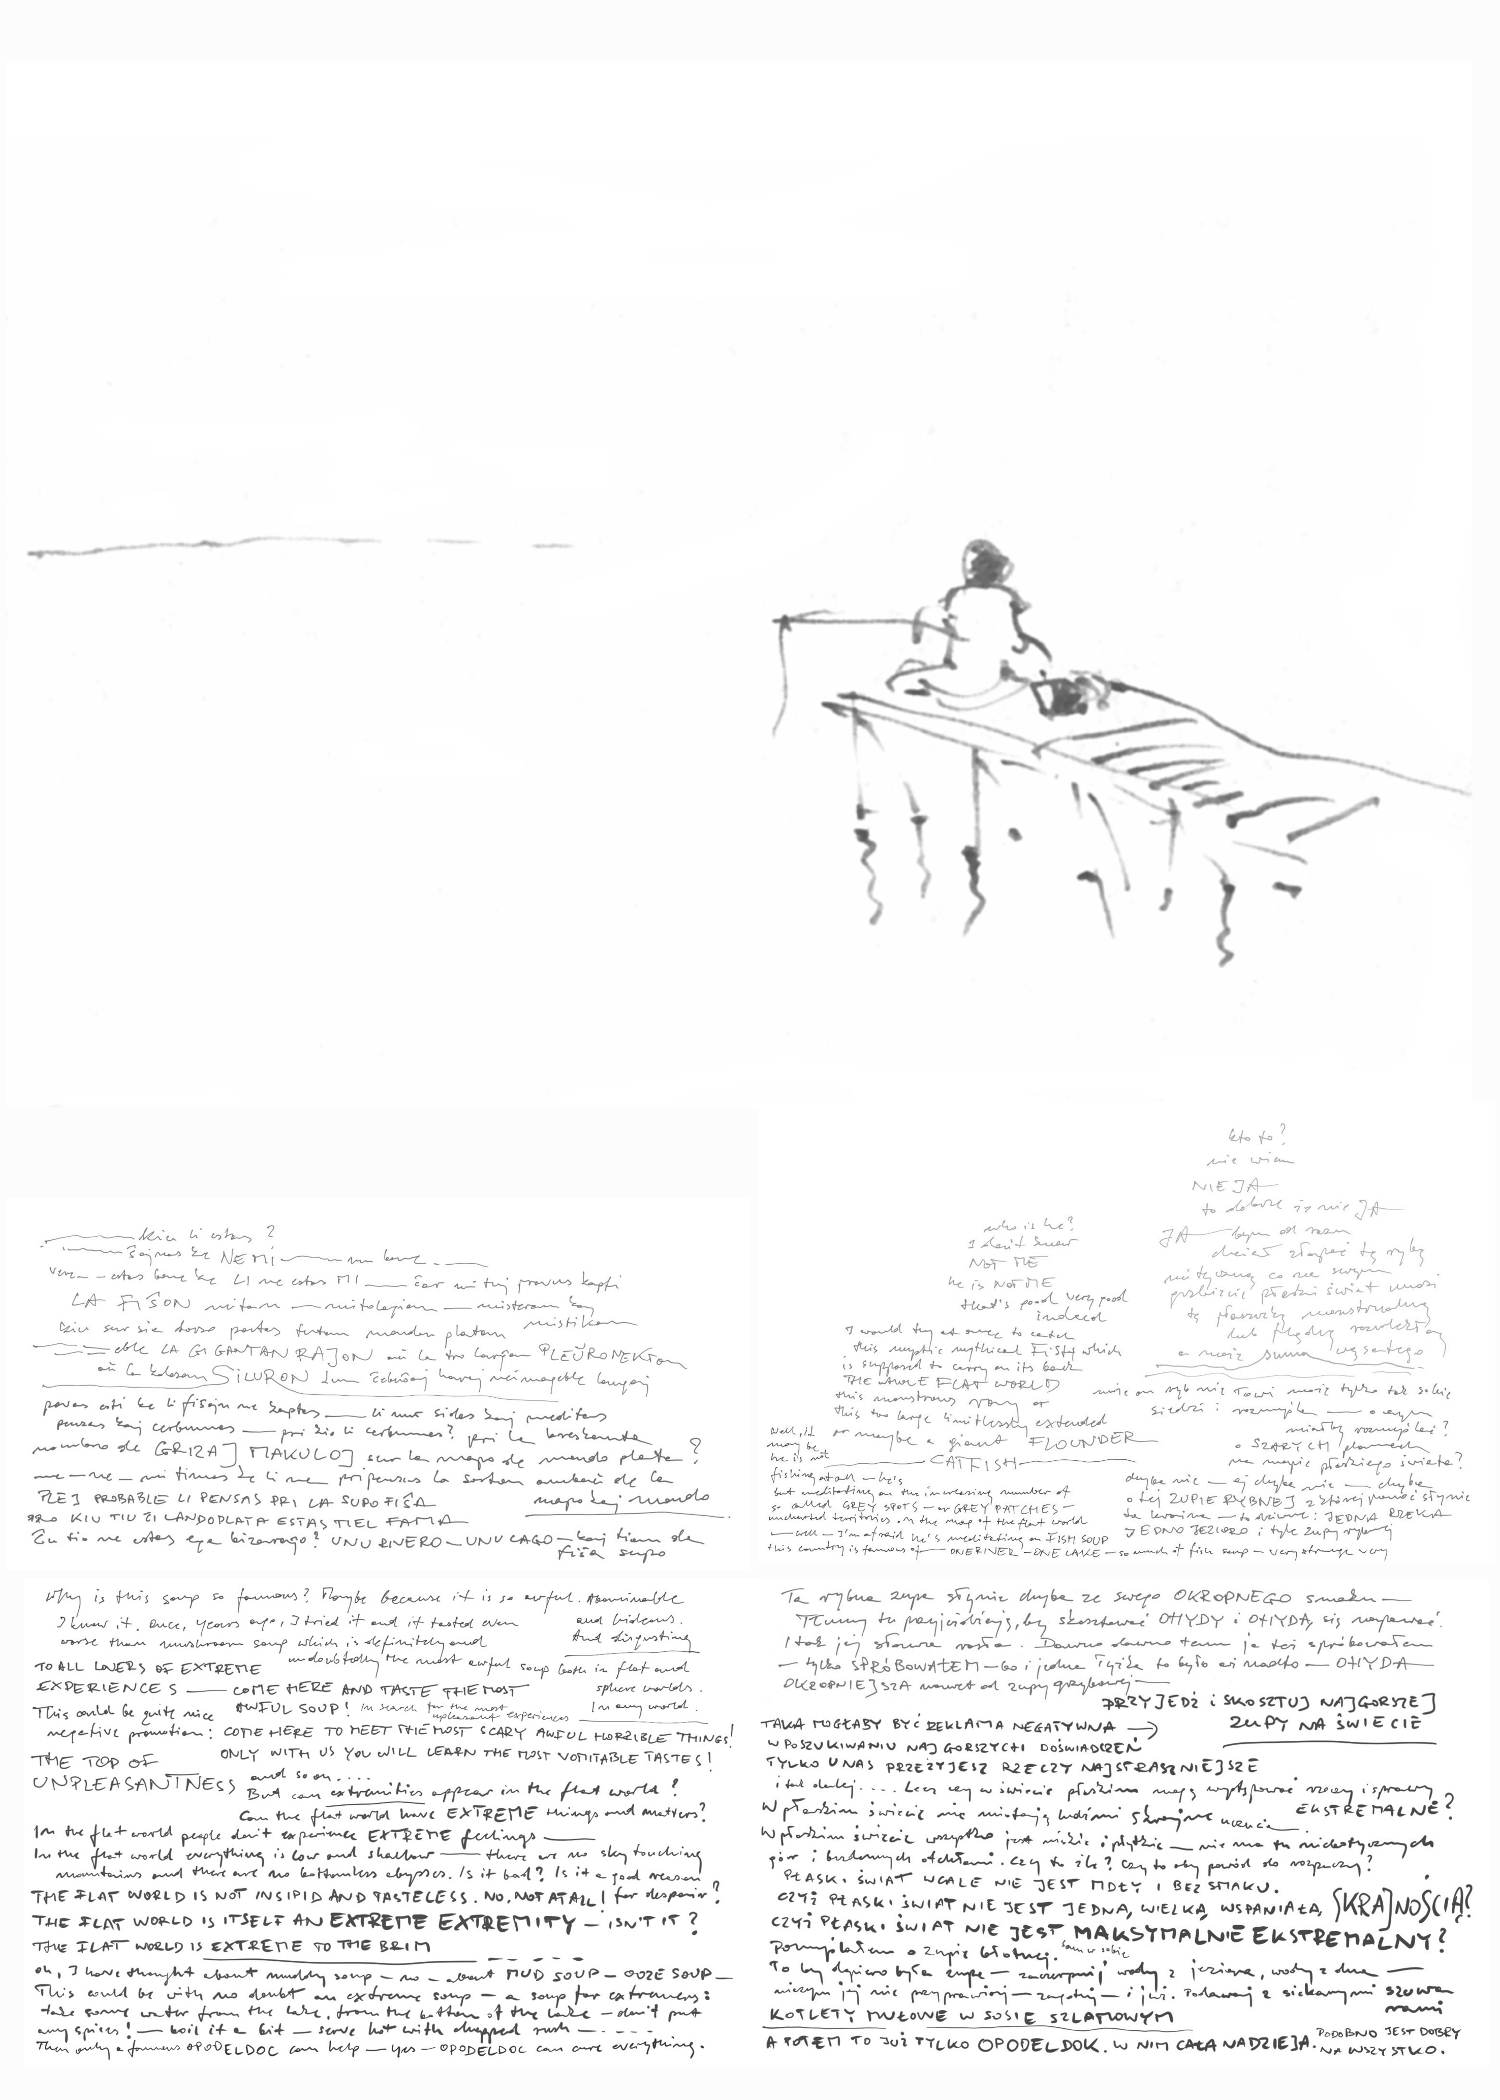 Kiu li estas ?
Ŝajnas ke NE MI
vere — estas bone ke LI ne estas MI — ĉar mi tuj provus kapti
LA FIŜON mitan — mitologian — misteran kaj
mistikan
kiu sur sia dorso portas tutan mondon platan
eble LA GIGANTAN RAJON aŭ la tro largan PLEŬRONEKTON
aŭ la kolosan SILURON kun
povas esti ke li fiŝojn ne kaptas — li nur sidas kaj meditas
pensas kaj cerbumas — pri kio li cerbumas? pri la kreskanta
nombro de GRIZAJ MAKULOJ sur la mapo de mondo plata ?
ne — ne — mi timas ke li ne pripensas la sorton de la
mapo kaj mondo
PLEJ PROBABLE LI PENSAS PRI LA SUPO FIŜA
PRO KIU TIU ĈI LANDO PLATA ESTAS TIEL FAMA
Ĉu tio ne estas ega bizarraĵo? UNU RIVERO — UNU LAGO — kaj tiom da
fiŝa supo
who is he?
I don't know
NOT ME
he is NOT ME
that's good very good
indeed
I would try at once to catch
this mystic mythical FISH which
is supposed to carry on its back
THE WHOLE FLAT WORLD
this monstrous or
this too large limitlessly extended
or maybe a giant FLOUNDER
CATFISH
Well, it
may be
he is not
fishing at all — he's
but meditating on the increasing number of
so called GREY SPOTS — or GREY PATCHES —
uncharted territories on the map of the flat world
— well — I'm afraid he's meditating on FISH SOUP
this country is famous of — ONE RIVER — ONE LAKE — so much of fish soup — very strange very
kto to?
nie wiem
NIE JA
to dobrze że nie JA
JA — bym od razu
chciał złapać tę rybę
mityczną co na swym
grzbiecie płaski świat unosi
tę płaszczkę monstrualną
lub flądrę rozwlekłą
a może suma wąsatego
może on ryb nie łowi może tylko tak sobie
siedzi i rozmyśla — o czym
miałby rozmyślać?
o SZARYCH plamach
na mapie płaskiego świata?
chyba nie — ej chyba nie — chyba
o tej ZUPIE RYBNEJ z której ponoć słynie
ta kraina — to dziwne : JEDNA RZEKA
JEDNO JEZIORO i tyle zupy rybnej
Why is this soup so famous? Maybe because it is so awful. Abominable
I know it. Once, years ago, I tried it and it tasted even and hideous.
worse than mushroom soup which is definitely and And disgusting
undoubtedly the most awful soup both in flat and
sphere worlds.
In any world.
TO ALL LOVERS OF EXTREME
EXPERIENCES — COME HERE AND TASTE THE MOST
AWFUL SOUP! In search for the most
unpleasant experiences
This could be quite nice
negative promotion: COME HERE TO MEET THE MOST SCARY AWFUL HORRIBLE THINGS!
ONLY WITH US YOU WILL LEARN THE MOST VOMITABLE TASTES!
THE TOP OF
UNPLEASANTNESS and so on....
But can extremities appear in the flat world ?
Can the flat world have EXTREME things and matters?
In the flat world people don't experience EXTREME feelings —
In the flat world everything is low and shallow — there are no sky touching
mountains and there are no bottomless abysses. Is it bad? Is it a good reason
for despair?
THE FLAT WORLD IS NOT INSIPID AND TASTELESS. NO, NOT AT ALL!
THE FLAT WORLD IS ITSELF AN EXTREME EXTREMITY — ISN'T IT ?
THE FLAT WORLD IS EXTREME TO THE BRIM
oh, I have thought about muddy soup — no — about MUD SOUP — OOZE SOUP —
This could be with no doubt an extreme soup — a soup for extremers :
take some water from the lake, from the bottom of the lake — don't put
any spices! — boil it a bit — serve hot with chopped rush — - - - -
Then only a famous OPODELDOC can help — yes — OPODELDOC can cure everything.
Ta rybna zupa słynie chyba ze swego OKROPNEGO smaku —
Tłumy tu przyjeżdżają, by skosztować OHYDY i OHYDĄ się napawać.
I tak jej sława rosła. Dawno dawno temu ja też spróbowałem
— tylko SPRÓBOWAŁEM — bo i jedna łyżka to było aż nadto — OHYDA
OKROPNIEJSZA nawet od zupy grzybowej —
PRZYJEDŹ i SKOSZTUJ NAJGORSZEJ
ZUPY NA ŚWIECIE
TAKA MOGŁABY BYĆ REKLAMA NEGATYWNA →
W POSZUKIWANIU NAJGORSZYCH DOŚWIADCZEŃ
TYLKO U NAS PRZEŻYJESZ RZECZY NAJSTRASZNIEJSZE
i tak dalej.... Lecz czy w świecie płaskim mogą występować rzeczy i sprawy
EKSTREMALNE?
W płaskim świecie nie miotają ludźmi skrajne uczucia
W płaskim świecie wszystko jest niskie i płytkie — nie ma tu niebotycznych
gór i bezdennych otchłani. Czy to źle? Czy to aby powód do rozpaczy?
PŁASKI ŚWIAT WCALE NIE JEST MDŁY I BEZ SMAKU.
CZYŻ PŁASKI ŚWIAT NIE JEST JEDNĄ, WIELKĄ, WSPANIAŁĄ, SKRAJNOŚCIĄ?
CZYŻ PŁASKI ŚWIAT NIE JEST MAKSYMALNIE EKSTREMALNY?
sam w sobie
Pomyślałem o zupie błotnej.
To by dopiero była zupa — zaczerpnij wody z jeziora, wody z dna —
niczym jej nie przyprawiaj — zagotuj — i już. Podawaj z siekanymi szuwa
rami
KOTLETY MUŁOWE W SOSIE SZLAMOWYM
A POTEM TO JUŻ TYLKO OPODELDOK. W NIM CAŁA NADZIEJA. PODOBNO JEST DOBRY
NA WSZYSTKO.